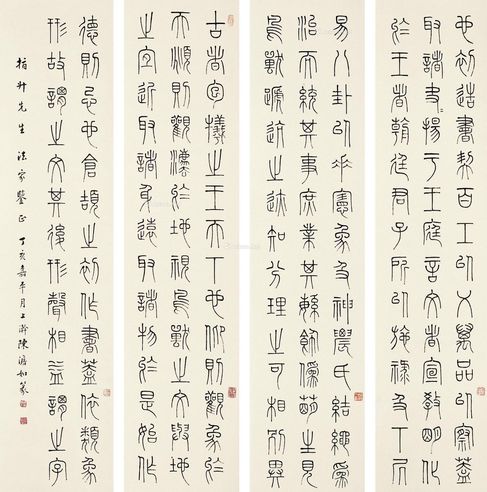 古者庖犧之王天下也仰則觀象於
天俯則觀灋於地視鳥獸之文與地
之宜近取諸身遠取諸物於是始作
易八卦以垂憲象及神農氏結繩為
治而統其事庶業其繁飾偽萌生見
鳥獸蹏迒之迹知分理之可相別異
也初造書契百工以乂萬品以察蓋
取諸夬揚于王庭言文者宣教明化
於王者朝廷君子所以施祿及丅居
德則忌也倉頡之初作書蓋依類象
形故謂之文其後形聲相益謂之字
升先生法家鑒正 丁亥嘉平月上澣陳如篆